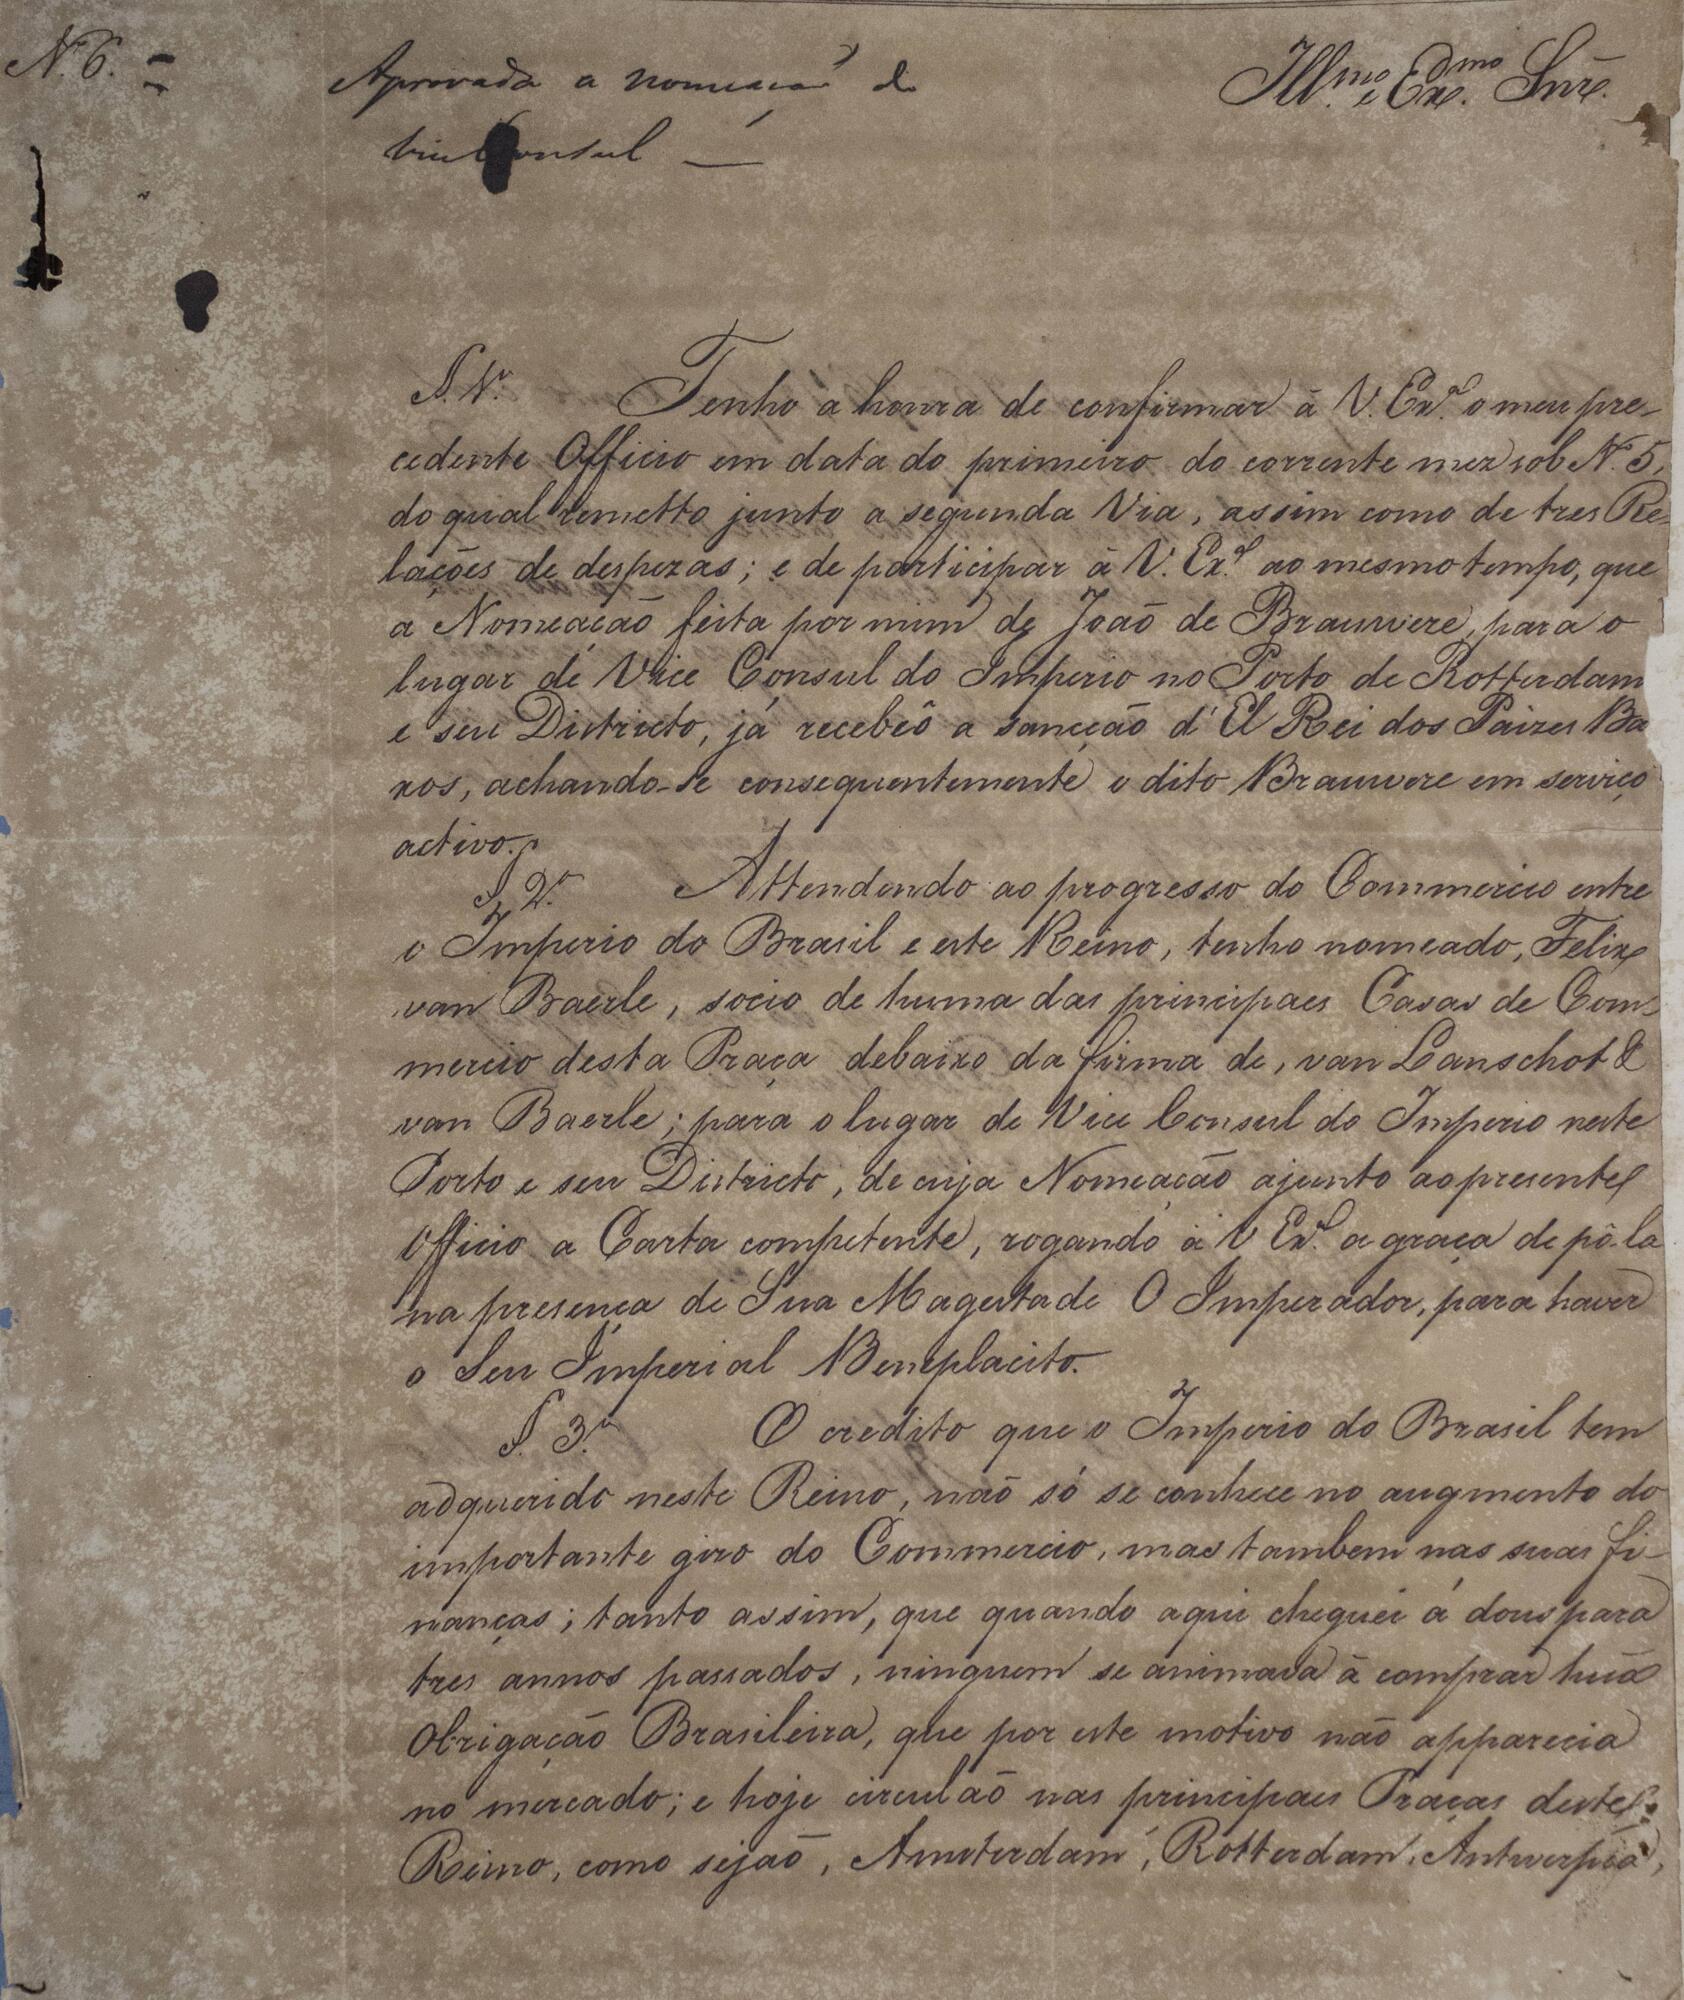 N.º 6. =
Aprovada a nomeação de
Vice Consul —
Ill.mo e Ex.mo Snr.
§. 1.º Tenho a honra de confirmar à V. Ex.ª o meu pre-
cedente Officio em data do primeiro do corrente mez sob N.º 5,
do qual remetto junto a segunda Via, assim como de tres Re-
lações de despezas; e de participar à V. Ex.ª ao mesmo tempo, que
a Nomeacão feita por mim de João de Brauwere, para o
lugar de Vice Consul do Imperio no Porto de Rotterdam
e seu Districto, já recebêo a sancção d'El Rei dos Paizes Ba
xos, achando-se consequentemente o dito Brauwere em serviço
activo.
§. 2.º Attendendo ao progresso do Commercio entre
o Imperio do Brasil e este Reino, tenho nomeado, Felix
van Baerle, socio de huma das principaes Casas de Com-
mercio desta Praça debaixo da firma de, van Lanschot &
van Baerle; para o lugar de Vice Consul do Imperio neste
Porto e seu Districto, de cuja Nomeação ajunto ao presente
Officio a Carta competente, rogando à V. Ex.ª a graça de pô-la
na presença de Sua Magestade O Imperador, para haver
o Seu Imperial Beneplacito.
§. 3.º O credito que o Imperio do Brasil tem
adquerido neste Reino, não só se conhece no augmento do
importante giro do Commercio, mas tambem nas suas fi-
nanças; tanto assim, que quando aqui cheguei á dous para
tres annos passados, ninguem se animava à comprar huã
Obrigação Brasileira, que por este motivo não apparecia
no mercado; e hoje circulão nas principaes Praças deste
Reino, como sejão, Amsterdam, Rotterdam, Antwerpia,